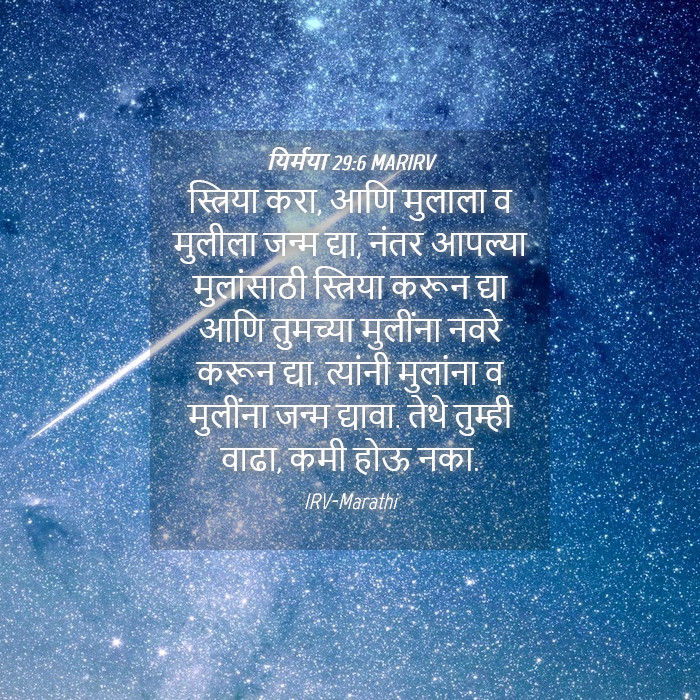 यिर्मया 29:6 MARIRV
स्त्रिया करा, आणि मुलाला व
मुलीला जन्म द्या, नंतर आपल्या
मुलांसाठी स्त्रिया करून द्या
आणि तुमच्या मुलींना नवरे
करून द्या. त्यांनी मुलांना व
मुलींना जन्म द्यावा. तेथे तुम्ही
वाढा, कमी होऊ नका.
IRV-Marathi